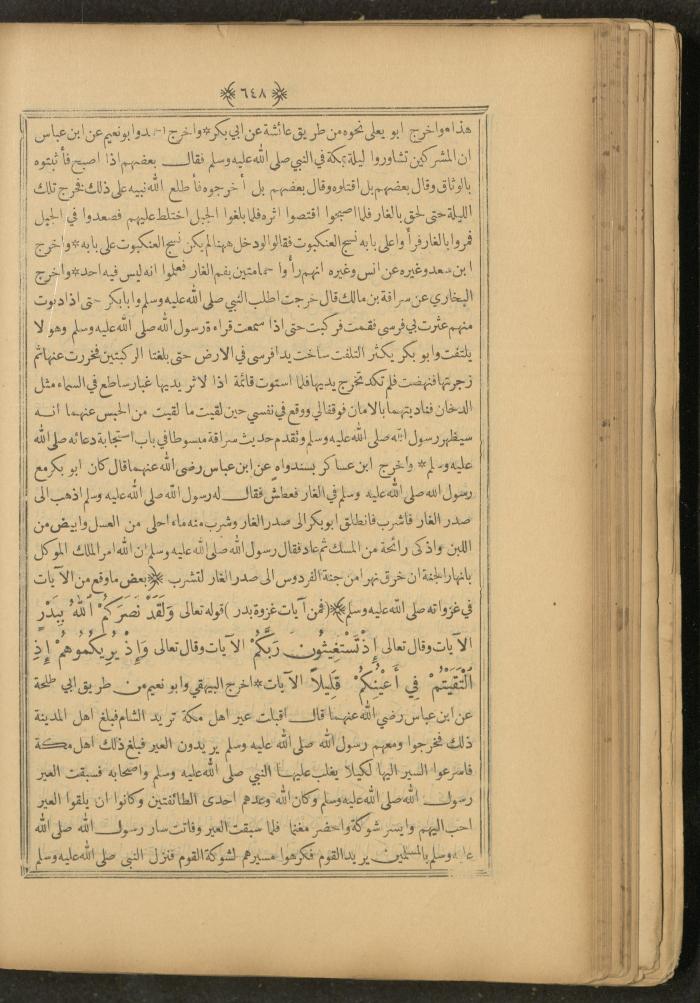 ﴿ ٦٤٨ ﴾
هذا * واخرج ابو يعلى نحوه من طريق عائشة عن ابي بكر * واخرج احمد وابو نعيم عن ابن عباس
ان المشركين تشاوروا ليلة بمكة في النبي صلى الله عليه وسلم فقال بعضهم اذا اصبح فأثبتوه
بالوثاق وقال بعضهم بل اقتلوه وقال بعضهم بل أخرجوه فأطلع الله نبيه على ذلك فخرج تلك
الليلة حتى لحق بالغار فلما اصبحوا اقتصوا اثره فلما بلغوا الجبل اختلط عليهم فصعدوا في الجبل
فمروا بالغار فرأوا على بابه نسج العنكبوت فقالوا لو دخل ههنا لم يكن نسج العنكبوت على بابه * واخرج
ابن سعد وغيره عن انس وغيره انهم رأوا حمامتين بفم الغار فعلموا انه ليس فيه احد * واخرج
البخاري عن سراقة بن مالك قال خرجت اطلب النبي صلى الله عليه وسلم وابا بكر حتى اذا دنوت
منهم عثرت بي فرسى فقمت فركبت حتى اذا سمعت قراءة رسول الله صلى الله عليه وسلم وهو لا
يلتفت وابو بكر يكثر التلفت ساخت يدا فرسى في الارض حتى بلغتا الركبتين فخررت عنها ثم
زجرتها فنهضت فلم تكد تخرج يديها فلما استوت قائمة اذا لاثر يديها غبار ساطع في السماء مثل
الدخان فناديتهما بالامان فوقفا لي ووقع في نفسي حين لقيت ما لقيت من الحبس عنهما انه
سيظهر رسول الله صلى الله عليه وسلم وتقدم حديث سراقة مبسوطا في باب استجابة دعائه صلى الله
عليه وسلم * واخرج ابن عساكر بسند واه عن ابن عباس رضى الله عنهما قال كان ابو بكر مع
رسول الله صلى الله عليه وسلم في الغار فعطش فقال له رسول الله صلى الله عليه وسلم اذهب الى
صدر الغار فاشرب فانطلق ابو بكر الى صدر الغار وشرب منه ماء احلى من العسل وابيض من
اللبن واذكى رائحة من المسك ثم عاد فقال رسول الله صلى الله عليه وسلم ان الله امر الملك الموكل
بانهار الجنة ان خرق نهرا من جنة الفردوس الى صدر الغار لتشرب ﴿ بعض ما وقع من الآيات
في غزواته صلى الله عليه وسلم ﴾ ( فمن آيات غزوة بدر ) قوله تعالى وَلَقَدْ نَصَرَكُمُ ٱللهُ بِبَدْرٍ
الآيات وقال تعالى إِذْ تَسْتَغِيثُونَ رَبَّكُمْ الآيات وقال تعالى وَإِذْ يُرِيكُمُوهُمْ إِذِ
ٱلْتَقَيْتُمْ فِي أَعْيُنِكُمْ قَلِيلًا الآيات * اخرج البيهقي وابو نعيم من طريق ابي طلحة
عن ابن عباس رضي الله عنهما قال اقبلت عير اهل مكة تريد الشام فبلغ اهل المدينة
ذلك فخرجوا ومعهم رسول الله صلى الله عليه وسلم يريدون العير فبلغ ذلك اهل مكة
فاسرعوا السير اليها لكيلا يغلب عليها النبي صلى الله عليه وسلم واصحابه فسبقت العير
رسول الله صلى الله عليه وسلم وكان الله وعدهم احدى الطائفتين وكانوا ان يلقوا العير
احب اليهم وايسر شوكة واحضر مغنما فلما سبقت العير وفاتت سار رسول الله صلى الله
عليه وسلم بالمسلمين يريد القوم فكرهوا مسيرهم لشوكة القوم فنزل النبي صلى الله عليه وسلم